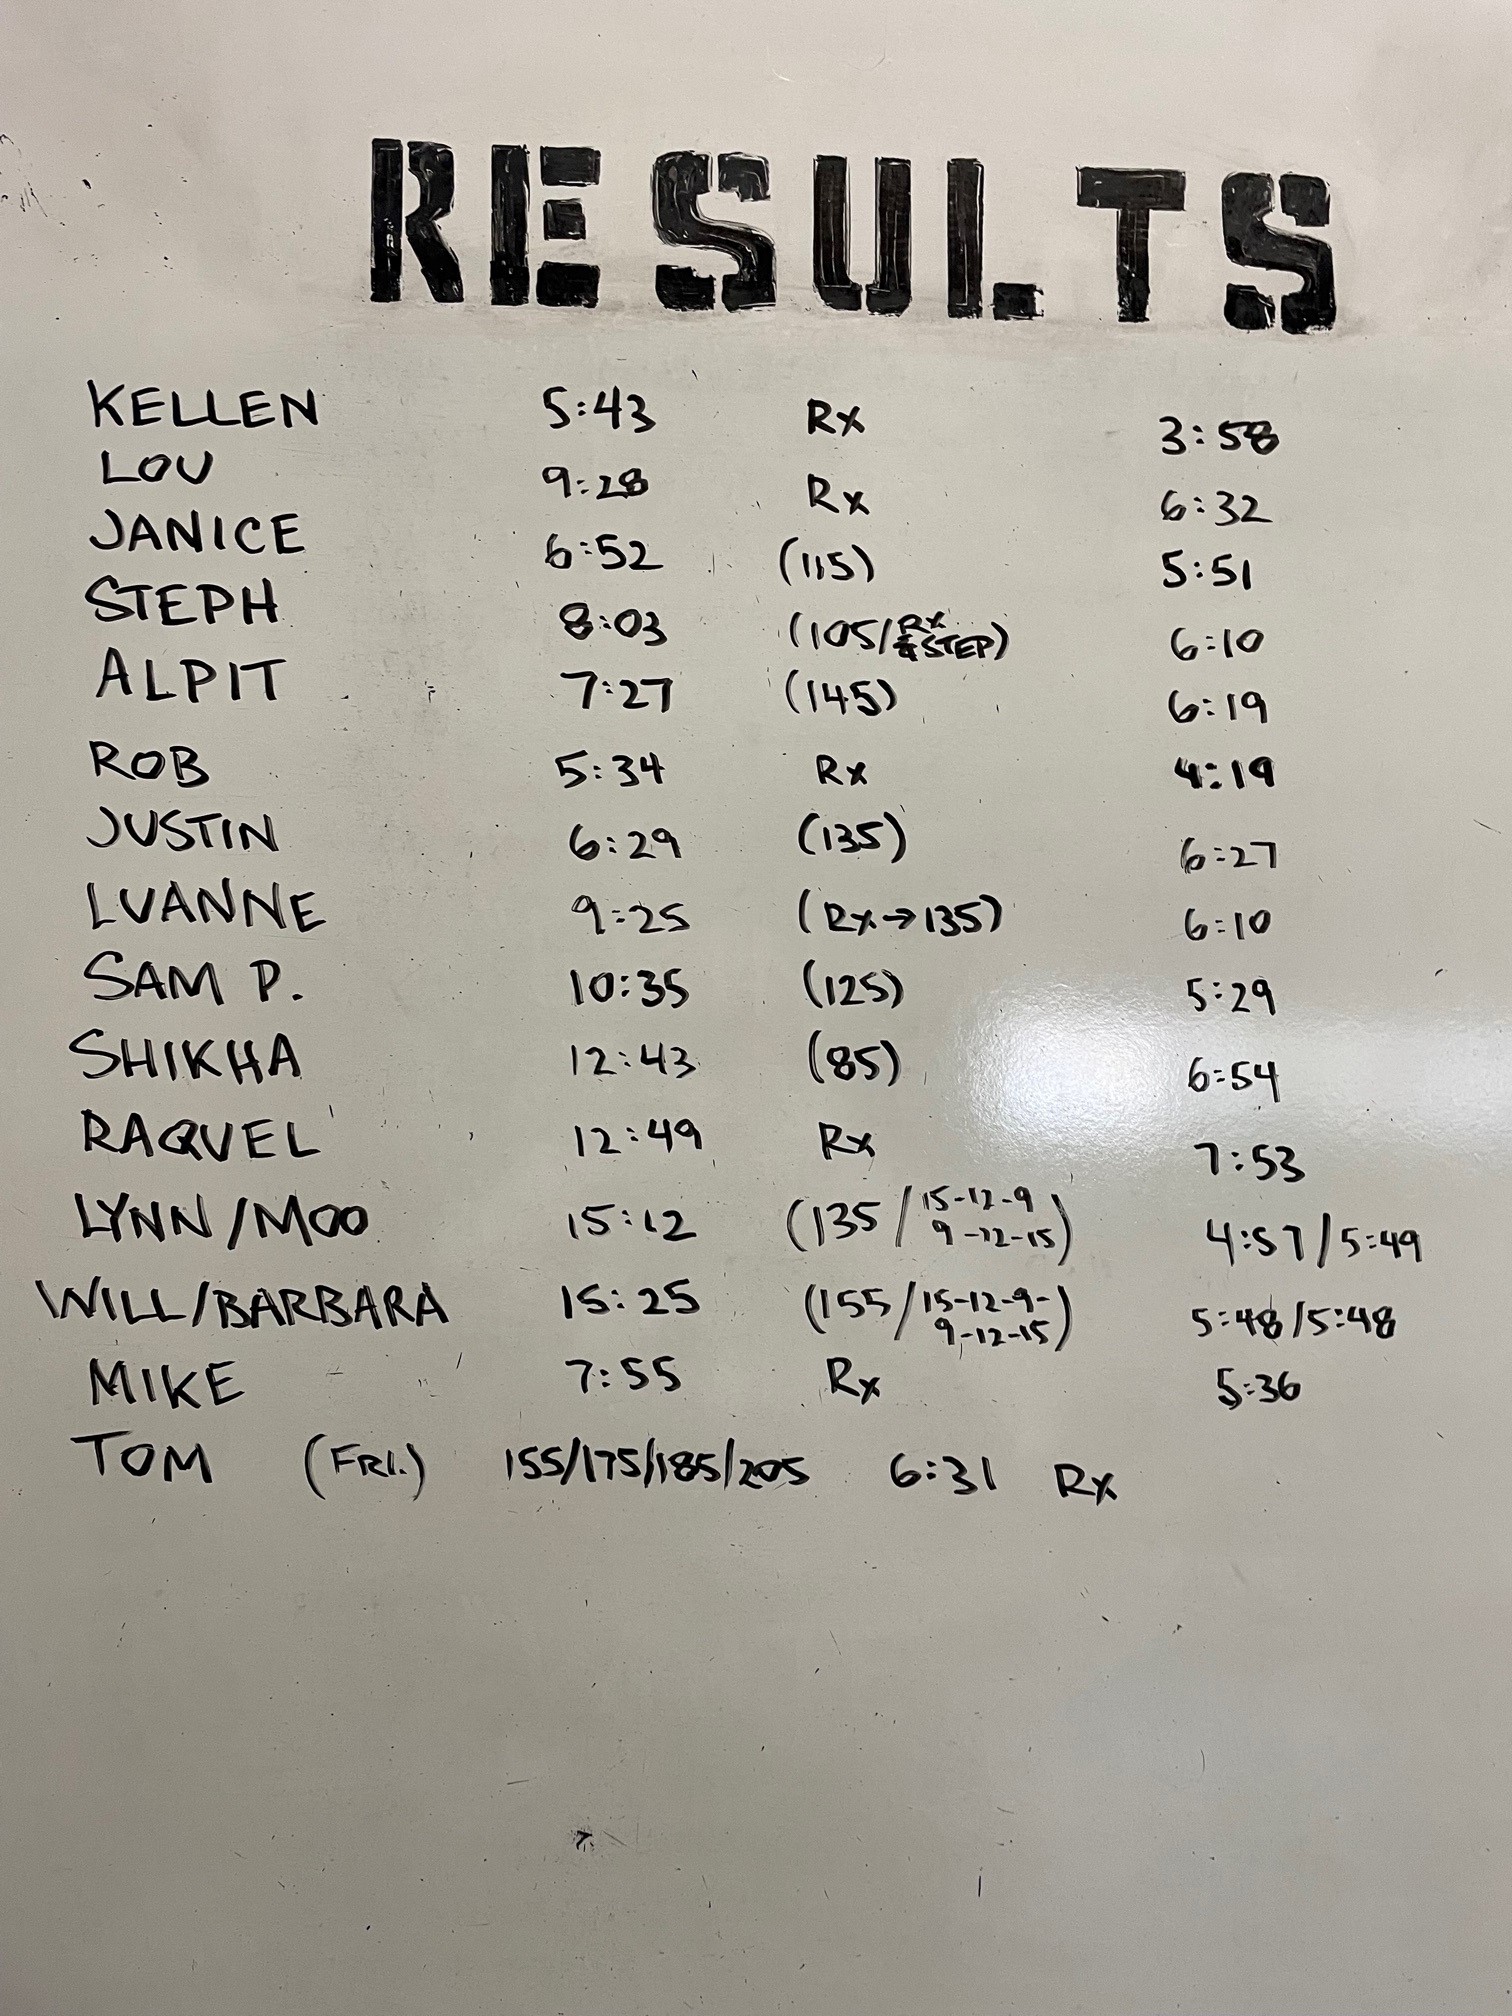 RESULTS
KELLEN 5:43 Rx 3:58
LOU 9:28 Rx 6:32
JANICE 6:52 (115) 5:51
STEPH 8:03 (105/RX & STEP) 6:10
ALPIT 7:27 (145) 6:19
ROB 5:34 Rx 4:19
JUSTIN 6:29 (135) 6:27
LUANNE 9:25 (Rx→135) 6:10
SAM P. 10:35 (125) 5:29
SHIKHA 12:43 (85) 6:54
RAQUEL 12:49 Rx 7:53
LYNN/MOO 15:12 (135/15-12-9 9-12-15) 4:57/5:49
WILL/BARBARA 15:25 (155/15-12-9- 9-12-15) 5:48/5:48
MIKE 7:55 Rx 5:36
TOM (FRI.) 155/175/185/205 6:31 Rx